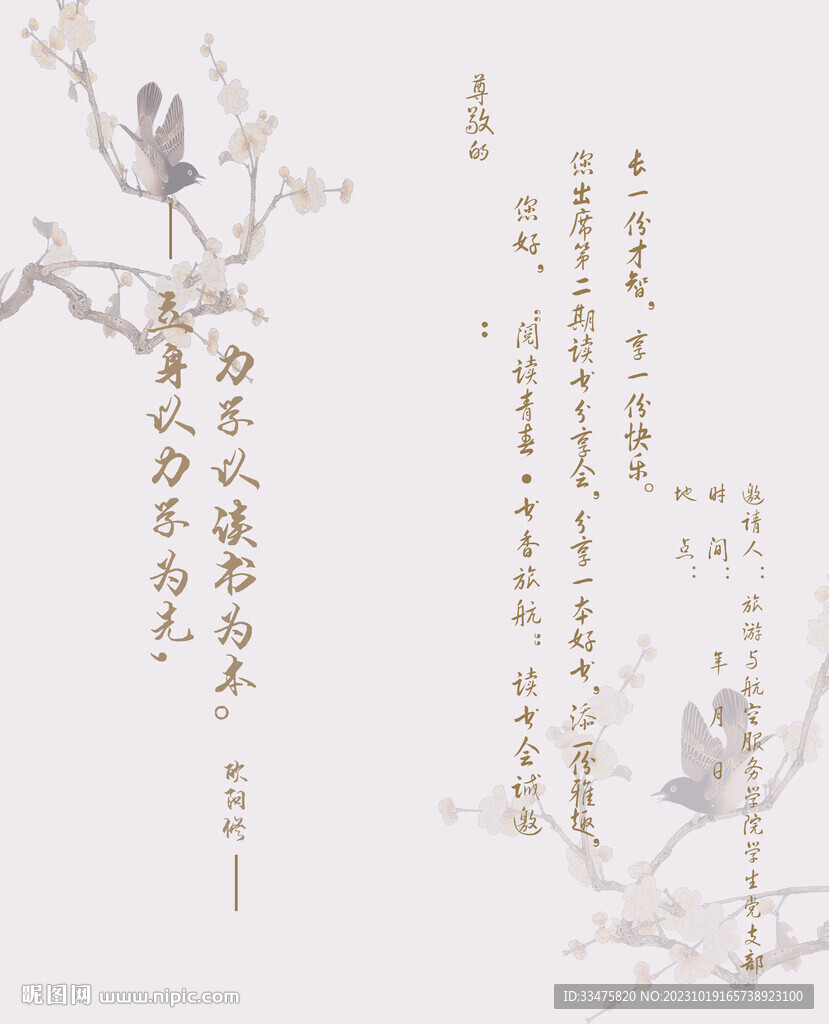 立身以力学为先，
力学以读书为本。
欧阳修
尊敬的
：
您好，“阅读青春•书香旅航”读书会诚邀
您出席第二期读书分享会，分享一本好书，添一份雅趣，
长一份才智，享一份快乐。
地 点：
时 间： 年 月 日
邀请人：旅游与航空服务学院学生党支部
昵图网 www.nipic.com
ID:33475820 NO:20231019165738923100